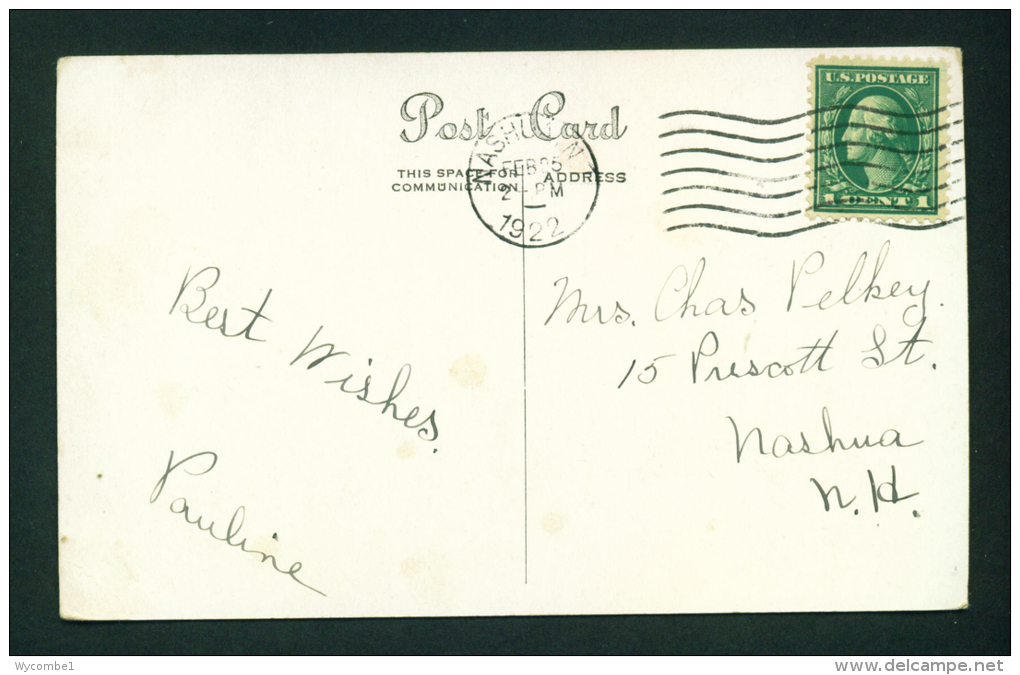 Post Card
THIS SPACE FOR
COMMUNICATION
ADDRESS
FEB 25
2 - PM
1922
U.S. POSTAGE
1 CENT 1
Best Wishes.
Pauline
Mrs. Chas Pelkey.
15 Prescott St.
Nashua
N.H.
Wycombe1
www.delcampe.net